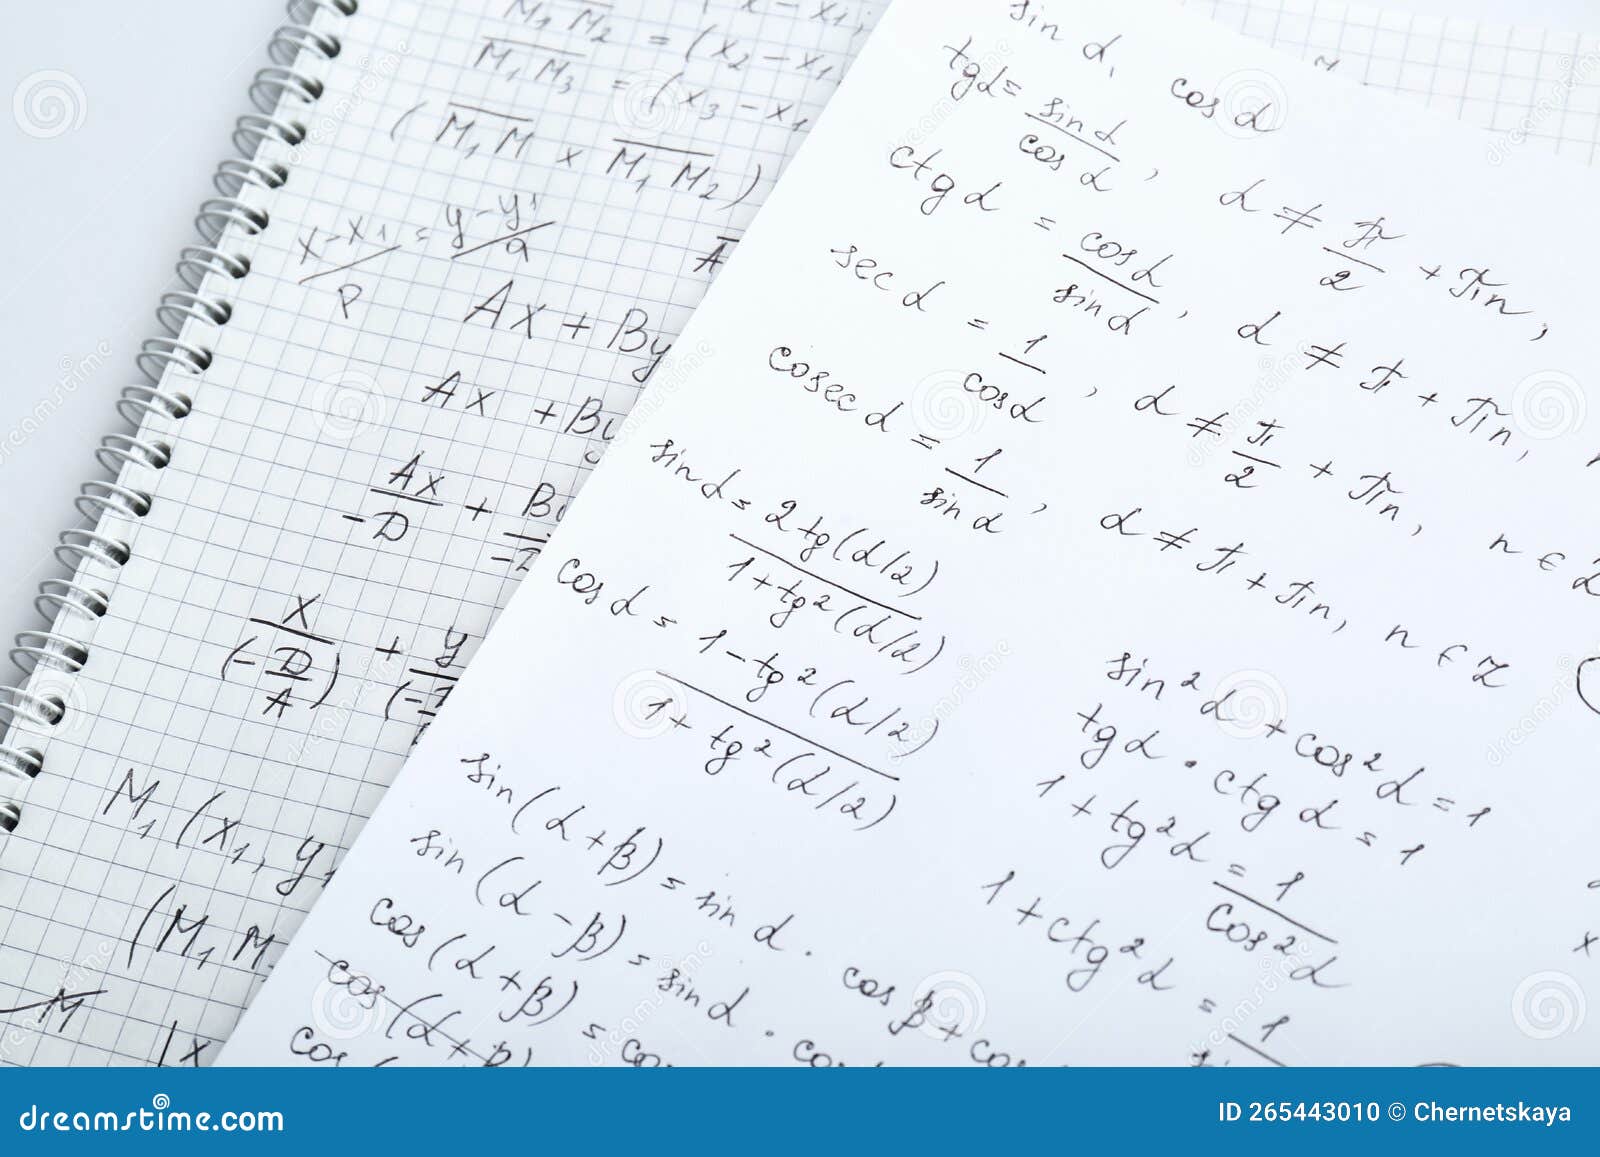 M₁M₂ = (x₂ - x₁
M₁M₃ = (x₃ - x₁
(M₁M x M₁M₂)
x-x₁/p = y-y¹/a
A
Ax + By
Ax + By
Ax/-D + By/-D
x/(-D/A) + y/(-
M₁(x₁, y₁
(M₁M
M
|x
sin α, cos α
tgα = sin α/cos α, α ≠ π/2 + πn,
ctg α = cos α/sin α, α ≠ π + πn,
sec α = 1/cos α, α ≠ π/2 + πn, n ∈ Z
cosec α = 1/sin α, α ≠ π + πn, n ∈ Z
sin α = 2tg(α/2)/1+tg²(α/2)
cos α = 1-tg²(α/2)/1+tg²(α/2)
sin²α + cos²α = 1
tgα · ctgα = 1
1 + tg²α = 1/cos²α
1 + ctg²α = 1/
sin(α+β) = sin α · cos β + cos
sin(α-β) = sin α · cos
cos(α+β) = cos
cos(α+β)
cos(
dreamstime.com
ID 265443010 © Chernetskaya